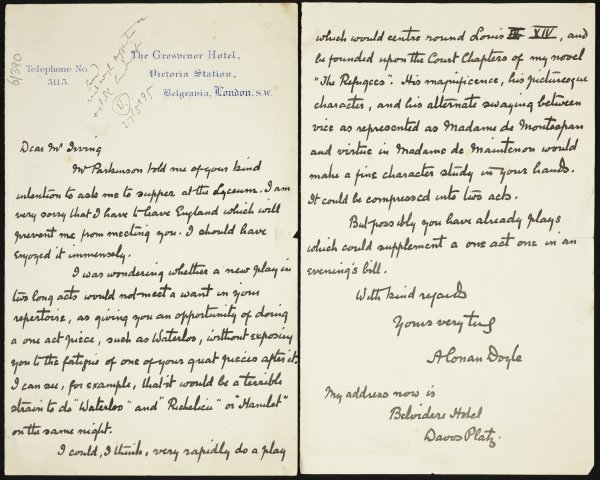 The Grosvenor Hotel,
Telephone No
3113.
Victoria Station,
Belgravia, London, S.W.
Dear Mr Irving
Mr Parkinson told me of your kind
intention to ask me to supper at the Lyceum. I am
very sorry that I have to leave England which will
prevent me from meeting you. I should have
enjoyed it immensely.
I was wondering whether a new play in
two long acts would not meet a want in your
repertoire, as giving you an opportunity of doing
a one act piece, such as Waterloo, without exposing
you to the fatigue of one of your great pieces after it.
I can see, for example, that it would be a terrible
strain to do "Waterloo" and "Richelieu" or "Hamlet"
on the same night.
I could, I think, very rapidly do a play
which would centre round Louis XIV, and
be founded upon the Court Chapters of my novel
"The Refugees". His magnificence, his picturesque
character, and his alternate swaying between
vice as represented as Madame de Montespan
and virtue in Madame de Maintenon would
make a fine character study in your hands.
It could be compressed into two acts.
But possibly you have already plays
which could supplement a one act one in an
evening's bill.
With kind regards
Yours very truly
A Conan Doyle
My address now is
Belvidere Hotel
Davos Platz.